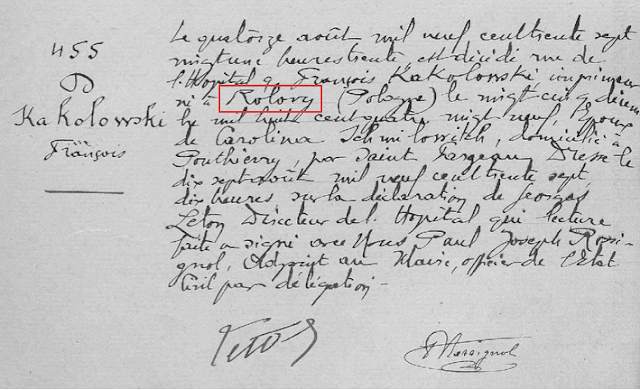 455
D
Kakolowski
François
Le quatorze août mil neuf cent trente sept
vingt une heures trente, est décédé rue de
l'Hopital 9, François Kakolowski imprimeur
né à Rolovy (Pologne) le vingt cinq décem
bre mil huit cent quatre vingt neuf, Epoux
de Carolina Schmilowitch, domicilié à
Ponthierry, par Saint Fargeau. Dressé le
dix sept août mil neuf cent trente sept
dix heures sur la déclaration de Georges
Directeur de l'Hopital qui lecture
faite a signé avec Nous, Paul Joseph Rossi-
gnol, Adjoint au Maire, officier de l'Etat
Civil par délégation-
Rossignol